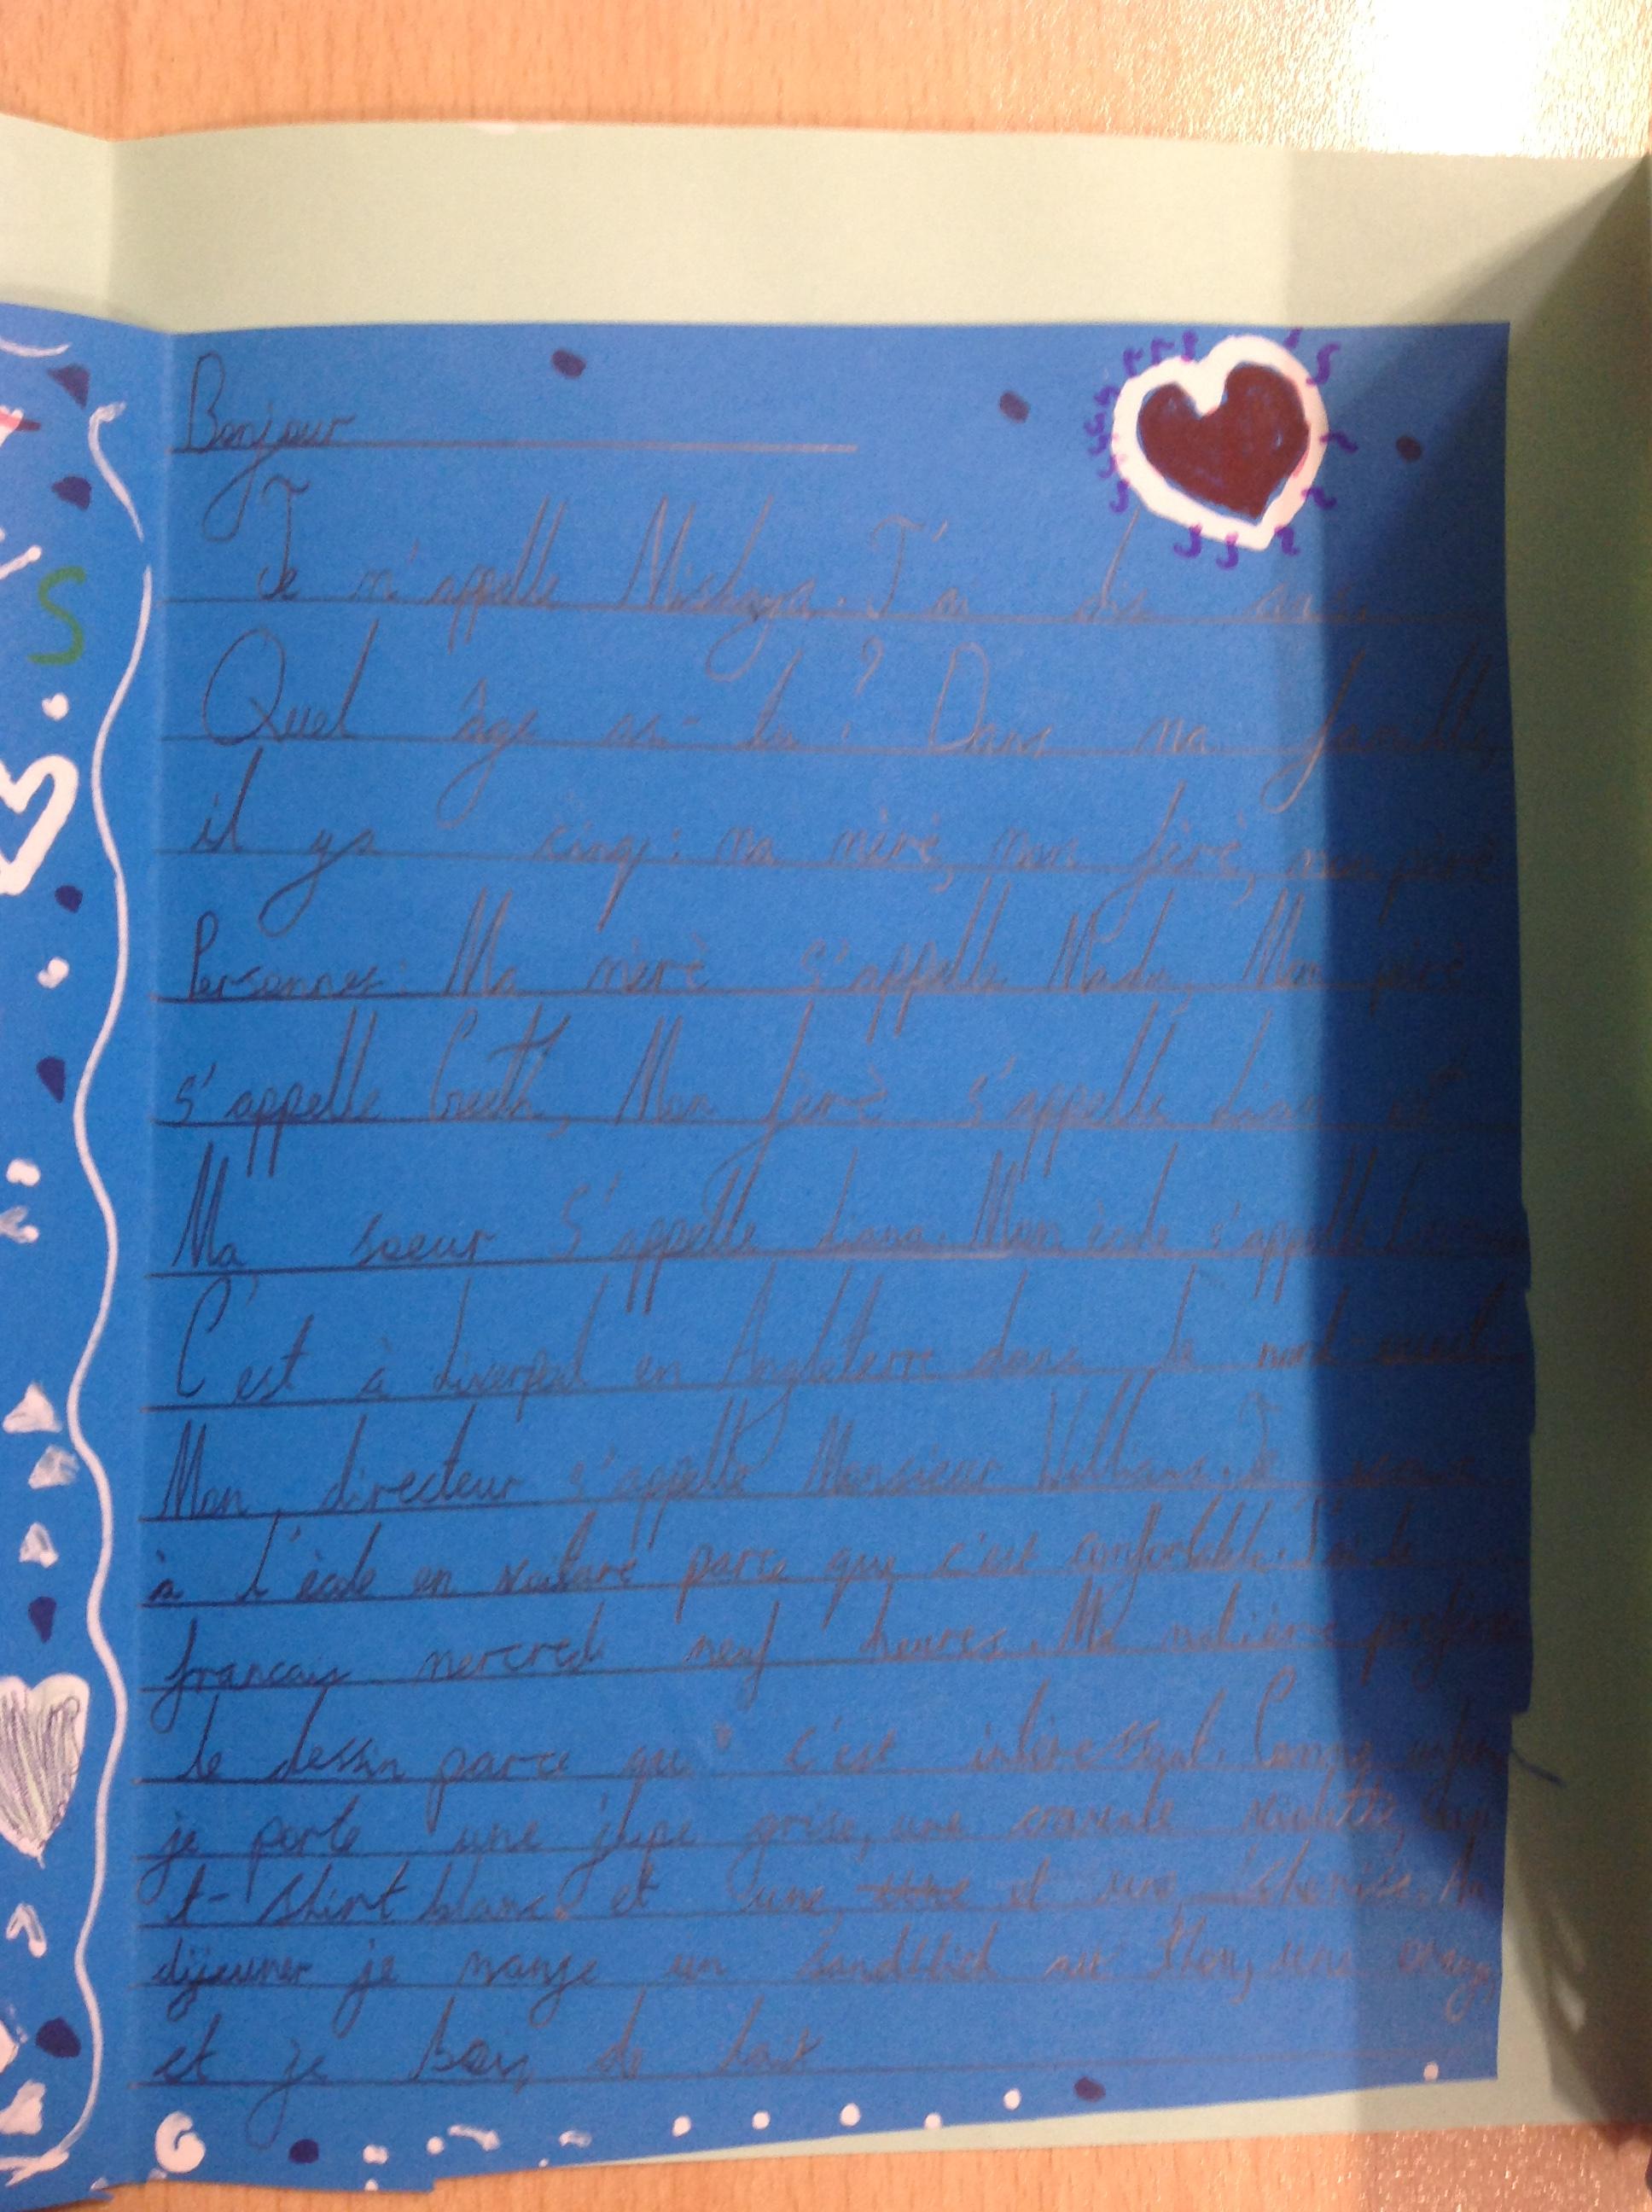 S
Bonjour
Je m'appelle Mishaya. J'ai dix ans.
Quel âge as-tu? Dans ma famille,
il ya cinq: ma mèrè, mon fèrè, mon pèrè
Personnes: Ma mèrè s'appelle Madu, Mon pèrè
s'appelle Mon fèrè s'appelle et
Ma soeur s'appelle Liana. Mon école s'appelle
C'est à Liverpool en Angleterre dans le nord-ouest
Mon directeur s'appelle Monsieur Williams. Je
à l'école en voiture parce que c'est confortable. J'ai le
francais mercredi neuf heures. Ma matière préférée
le dessin parce que c'est intéressant. Comme
je porte une jupe grise, une cravate violette,
t-shirt blanc et une et une
déjeuner je mange un sandwich au thon, une
et je bois de lait